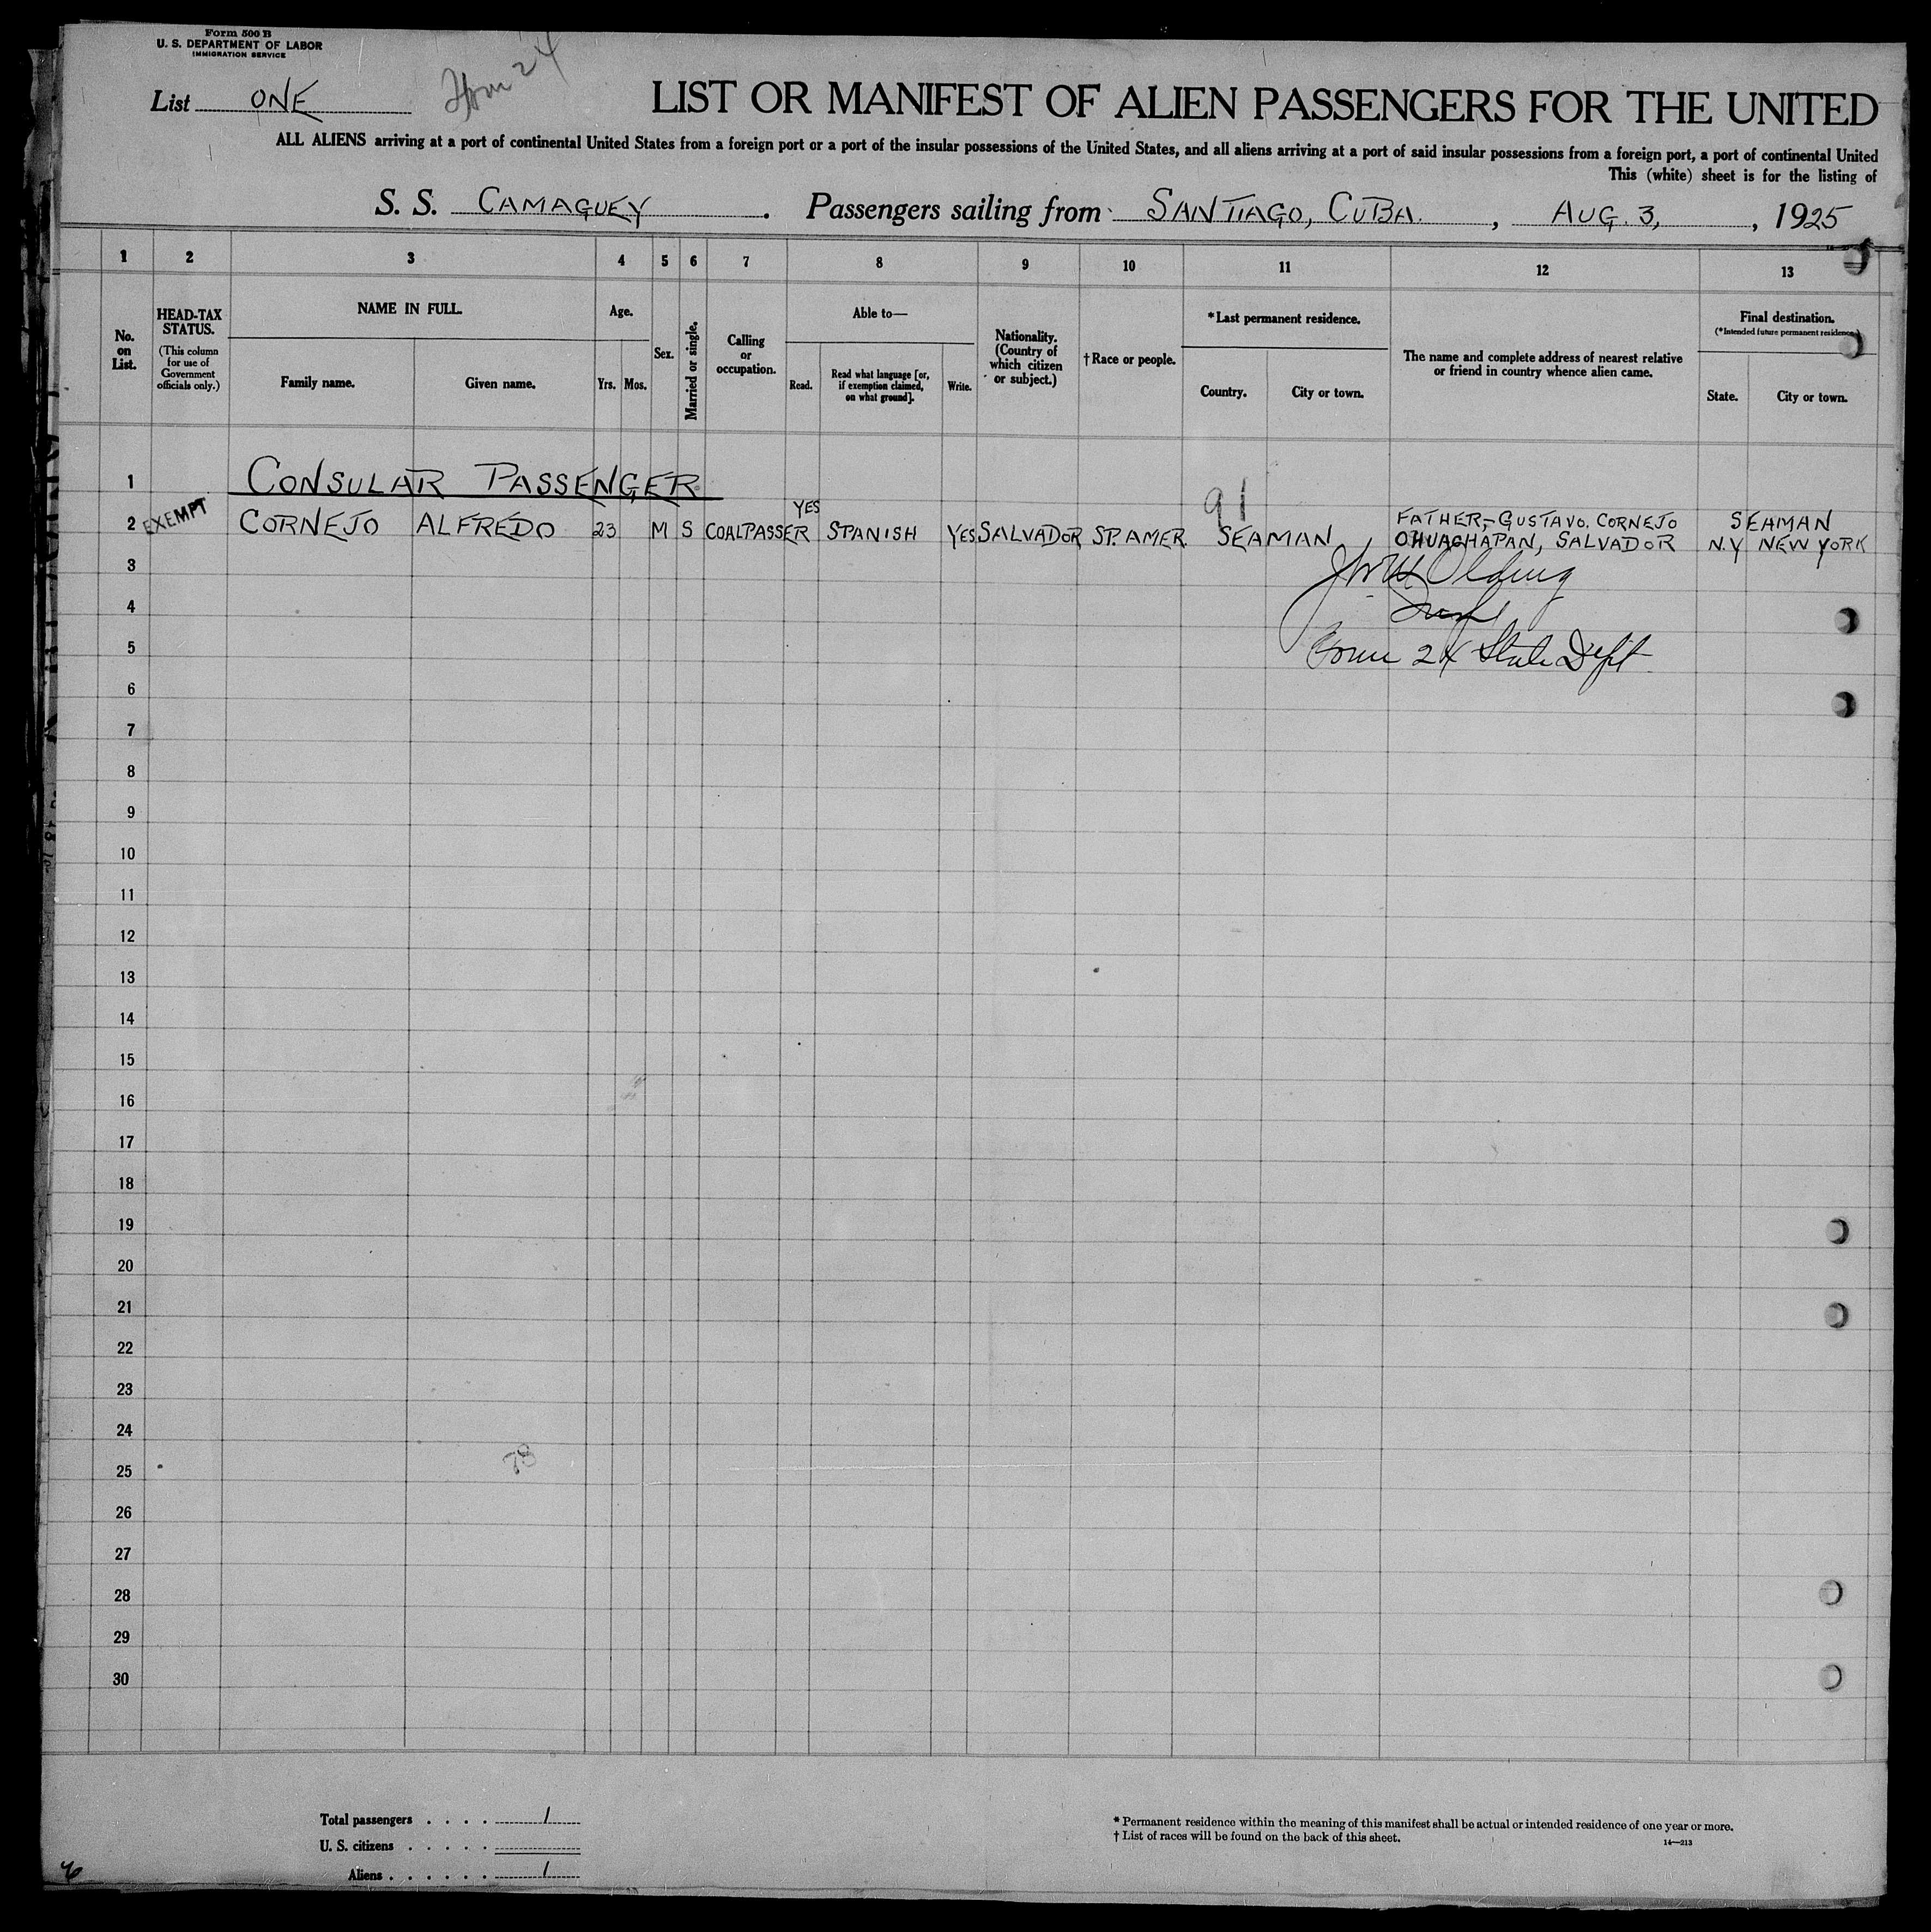 Form 500 B
U. S. DEPARTMENT OF LABOR
IMMIGRATION SERVICE
List ONE
24
LIST OR MANIFEST OF ALIEN PASSENGERS FOR THE UNITED
ALL ALIENS arriving at a port of continental United States from a foreign port or a port of the insular possessions of the United States, and all aliens arriving at a port of said insular possessions from a foreign port, a port of continental United
This (white) sheet is for the listing of
S. S. CAMAGUEY. Passengers sailing from SANTIAGO, CUBA., AUG. 3, , 1925
1 2 3 4 5 6 7 8 9 10 11 12 13
No. on List.
HEAD-TAX STATUS.
(This column for use of Government officials only.)
NAME IN FULL.
Family name. Given name.
Age.
Yrs. Mos.
Sex.
Married or single.
Calling or occupation.
Able to—
Read. Read what language [or, if exemption claimed, on what ground]. Write.
Nationality. (Country of which citizen or subject.)
†Race or people.
*Last permanent residence.
Country. City or town.
The name and complete address of nearest relative or friend in country whence alien came.
Final destination.
(*Intended future permanent residence.)
State. City or town.
1 CONSULAR PASSENGER
91
2 EXEMPT CORNEJO ALFREDO 23 M S COALPASSER YES SPANISH YES SALVADOR SP. AMER. SEAMAN FATHER,- GUSTAVO. CORNEJO SEAMAN
OHUACHAPAN, SALVADOR N.Y NEW YORK
3
4
5 Form 24 State Dept
6
7
8
9
10
11
12
13
14
15
16
17
18
19
20
21
22
23
24
78
25
26
27
28
29
30
Total passengers . . . . 1
U. S. citizens . . . . .
Aliens . . . . . . 1
* Permanent residence within the meaning of this manifest shall be actual or intended residence of one year or more.
† List of races will be found on the back of this sheet. 14—213